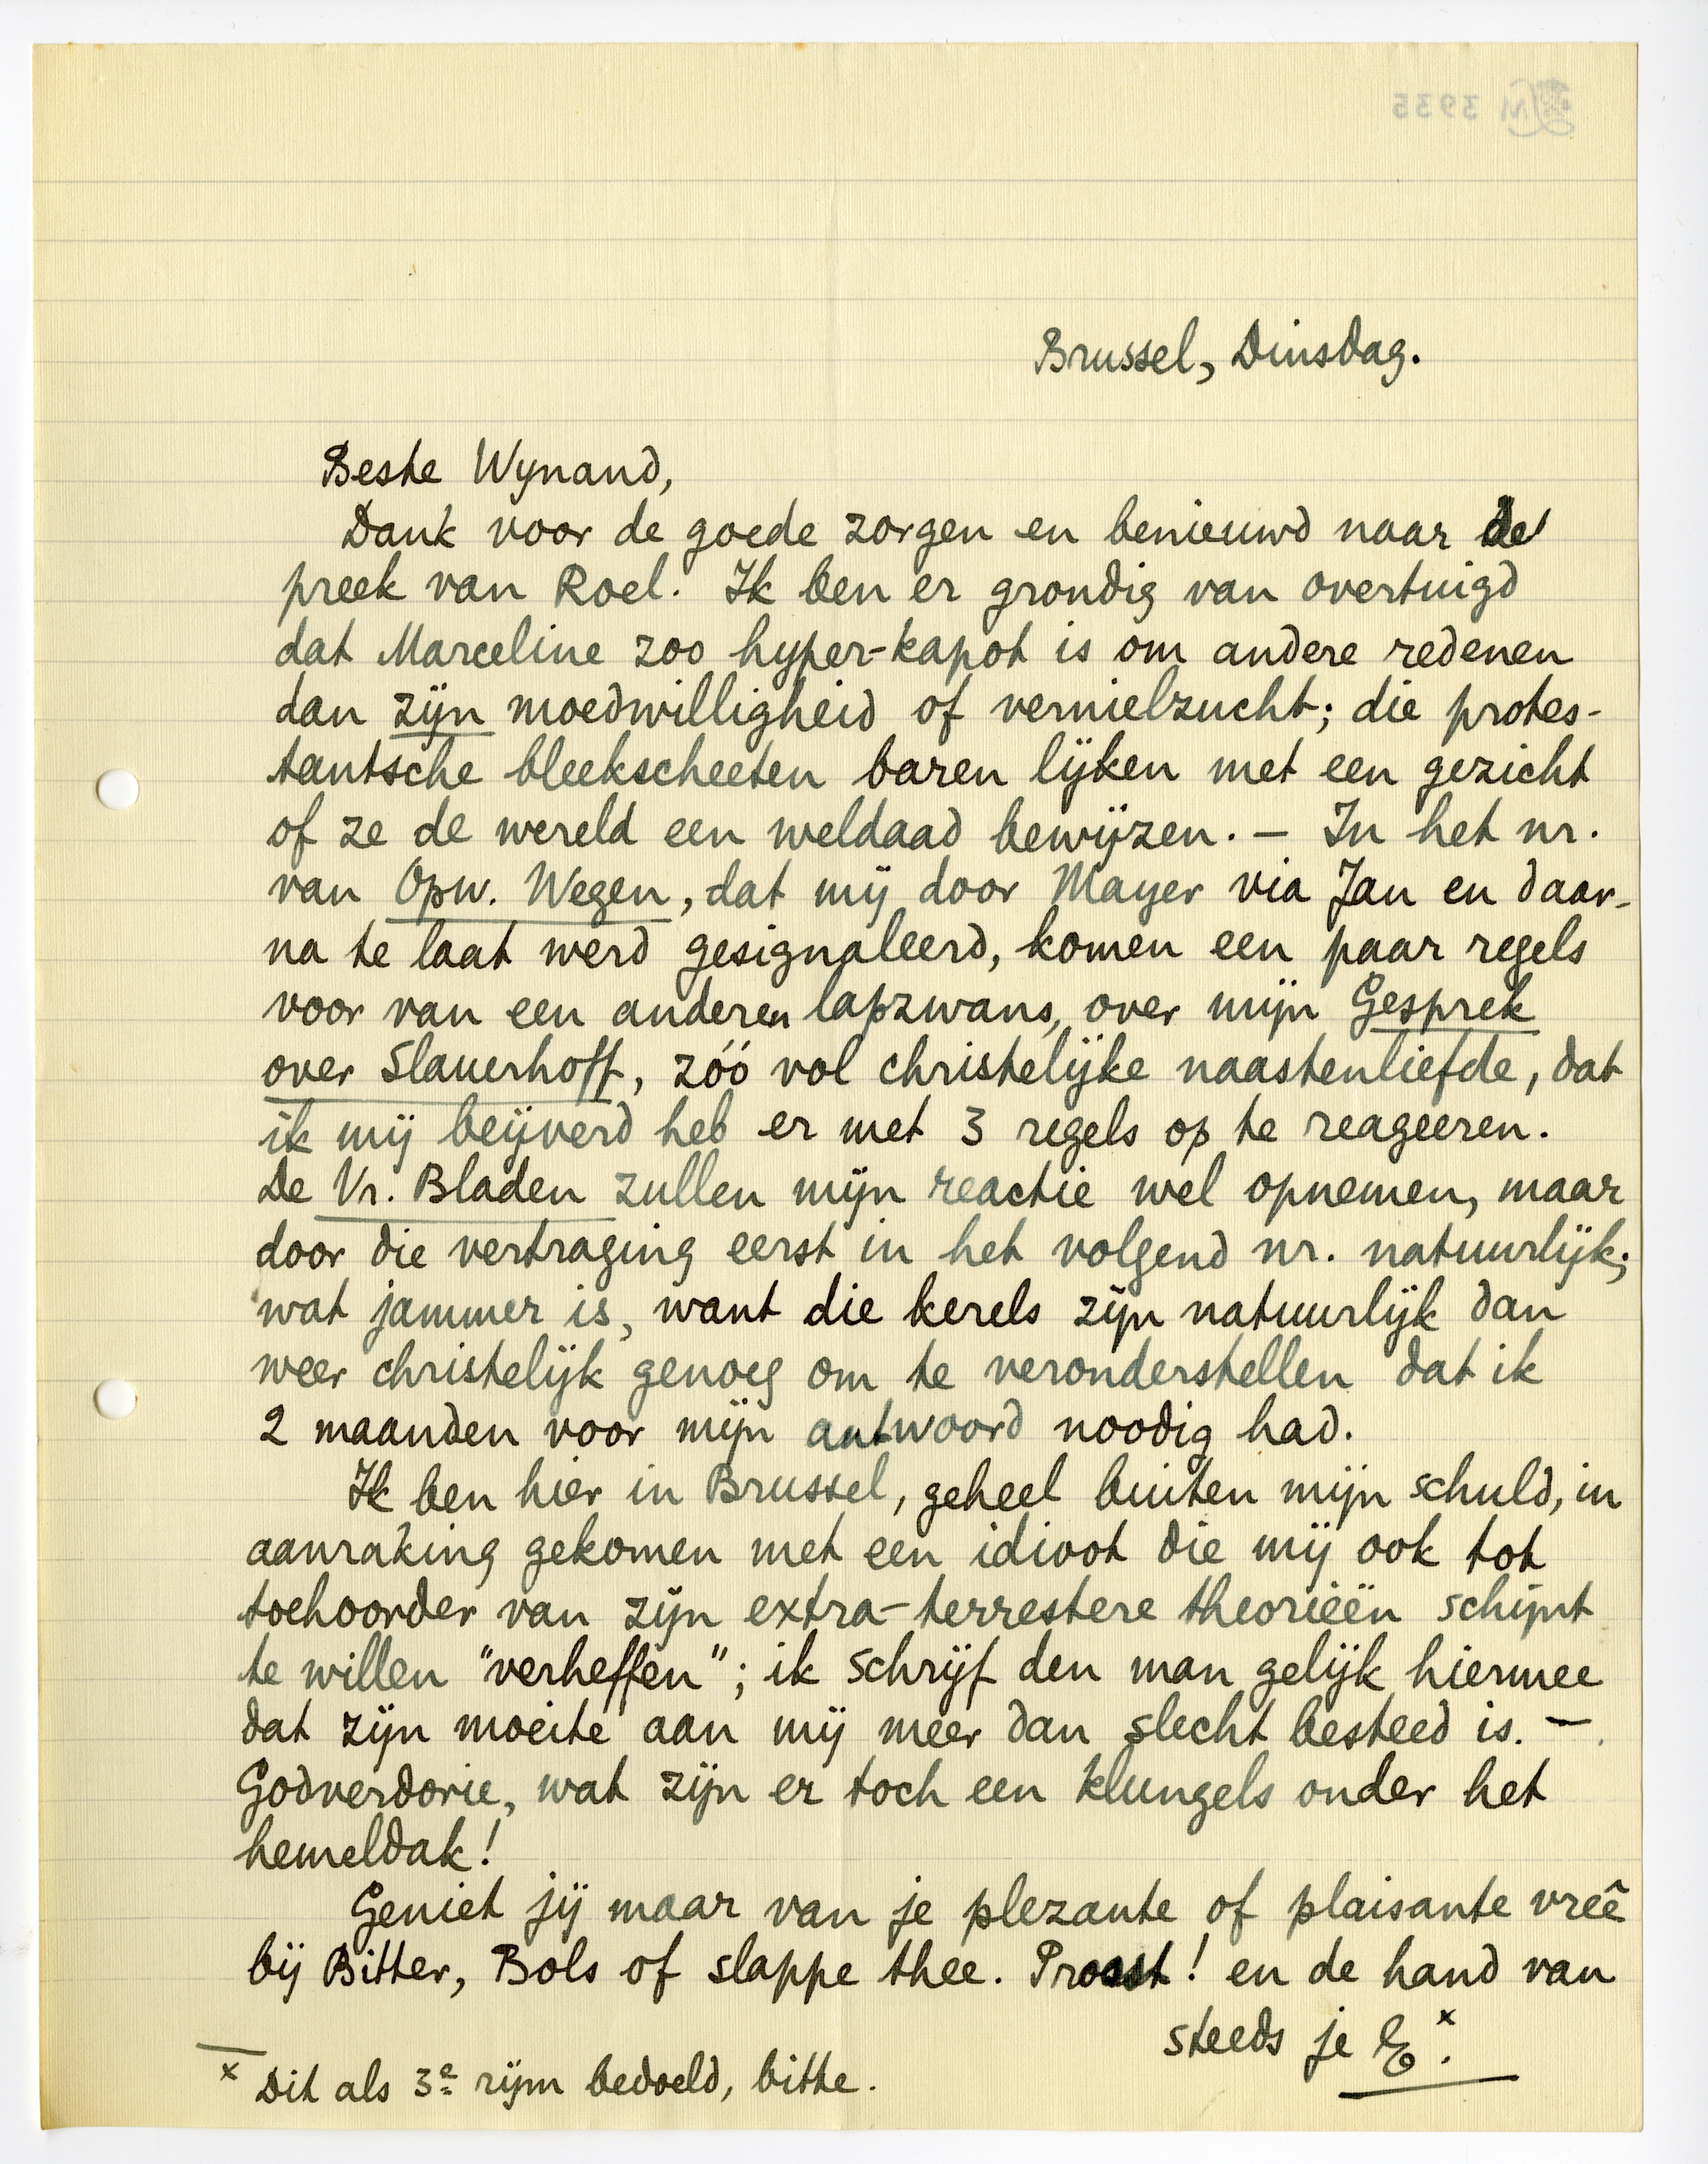 LM 3935
Brussel, Dinsdag.
Beste Wynand,
Dank voor de goede zorgen en benieuwd naar de
preek van Roel. Ik ben er grondig van overtuigd
dat Marceline zoo hyper-kapot is om andere redenen
dan zijn moedwilligheid of vernielzucht; die protes-
tantsche bleekscheeten baren lijken met een gezicht
of ze de wereld een weldaad bewijzen. – In het nr.
van Opw. Wegen, dat mij door Mayer via Jan en daar-
na te laat werd gesignaleerd, komen een paar regels
voor van een anderen lapzwans, over mijn Gesprek
over Slauerhoff, zóó vol christelijke naastenliefde, dat
ik mij beijverd heb er met 3 regels op te reageeren.
De Vr. Bladen zullen mijn reactie wel opnemen, maar
door die vertraging eerst in het volgend nr. natuurlijk;
wat jammer is, want die kerels zijn natuurlijk dan
weer christelijk genoeg om te veronderstellen dat ik
2 maanden voor mijn antwoord noodig had.
Ik ben hier in Brussel, geheel buiten mijn schuld, in
aanraking gekomen met een idioot die mij ook tot
toehoorder van zijn extra-terrestere theorieën schijnt
te willen "verheffen"; ik schrijf den man gelijk hiermee
dat zijn moeite aan mij meer dan slecht besteed is. –
Godverdorie, wat zijn er toch een klungels onder het
hemeldak!
Geniet jij maar van je plezante of plaisante vreê
bij Bitter, Bols of slappe thee. Proost! en de hand van
steeds je E.ˣ
x Dit als 3e rijm bedoeld, bitte.